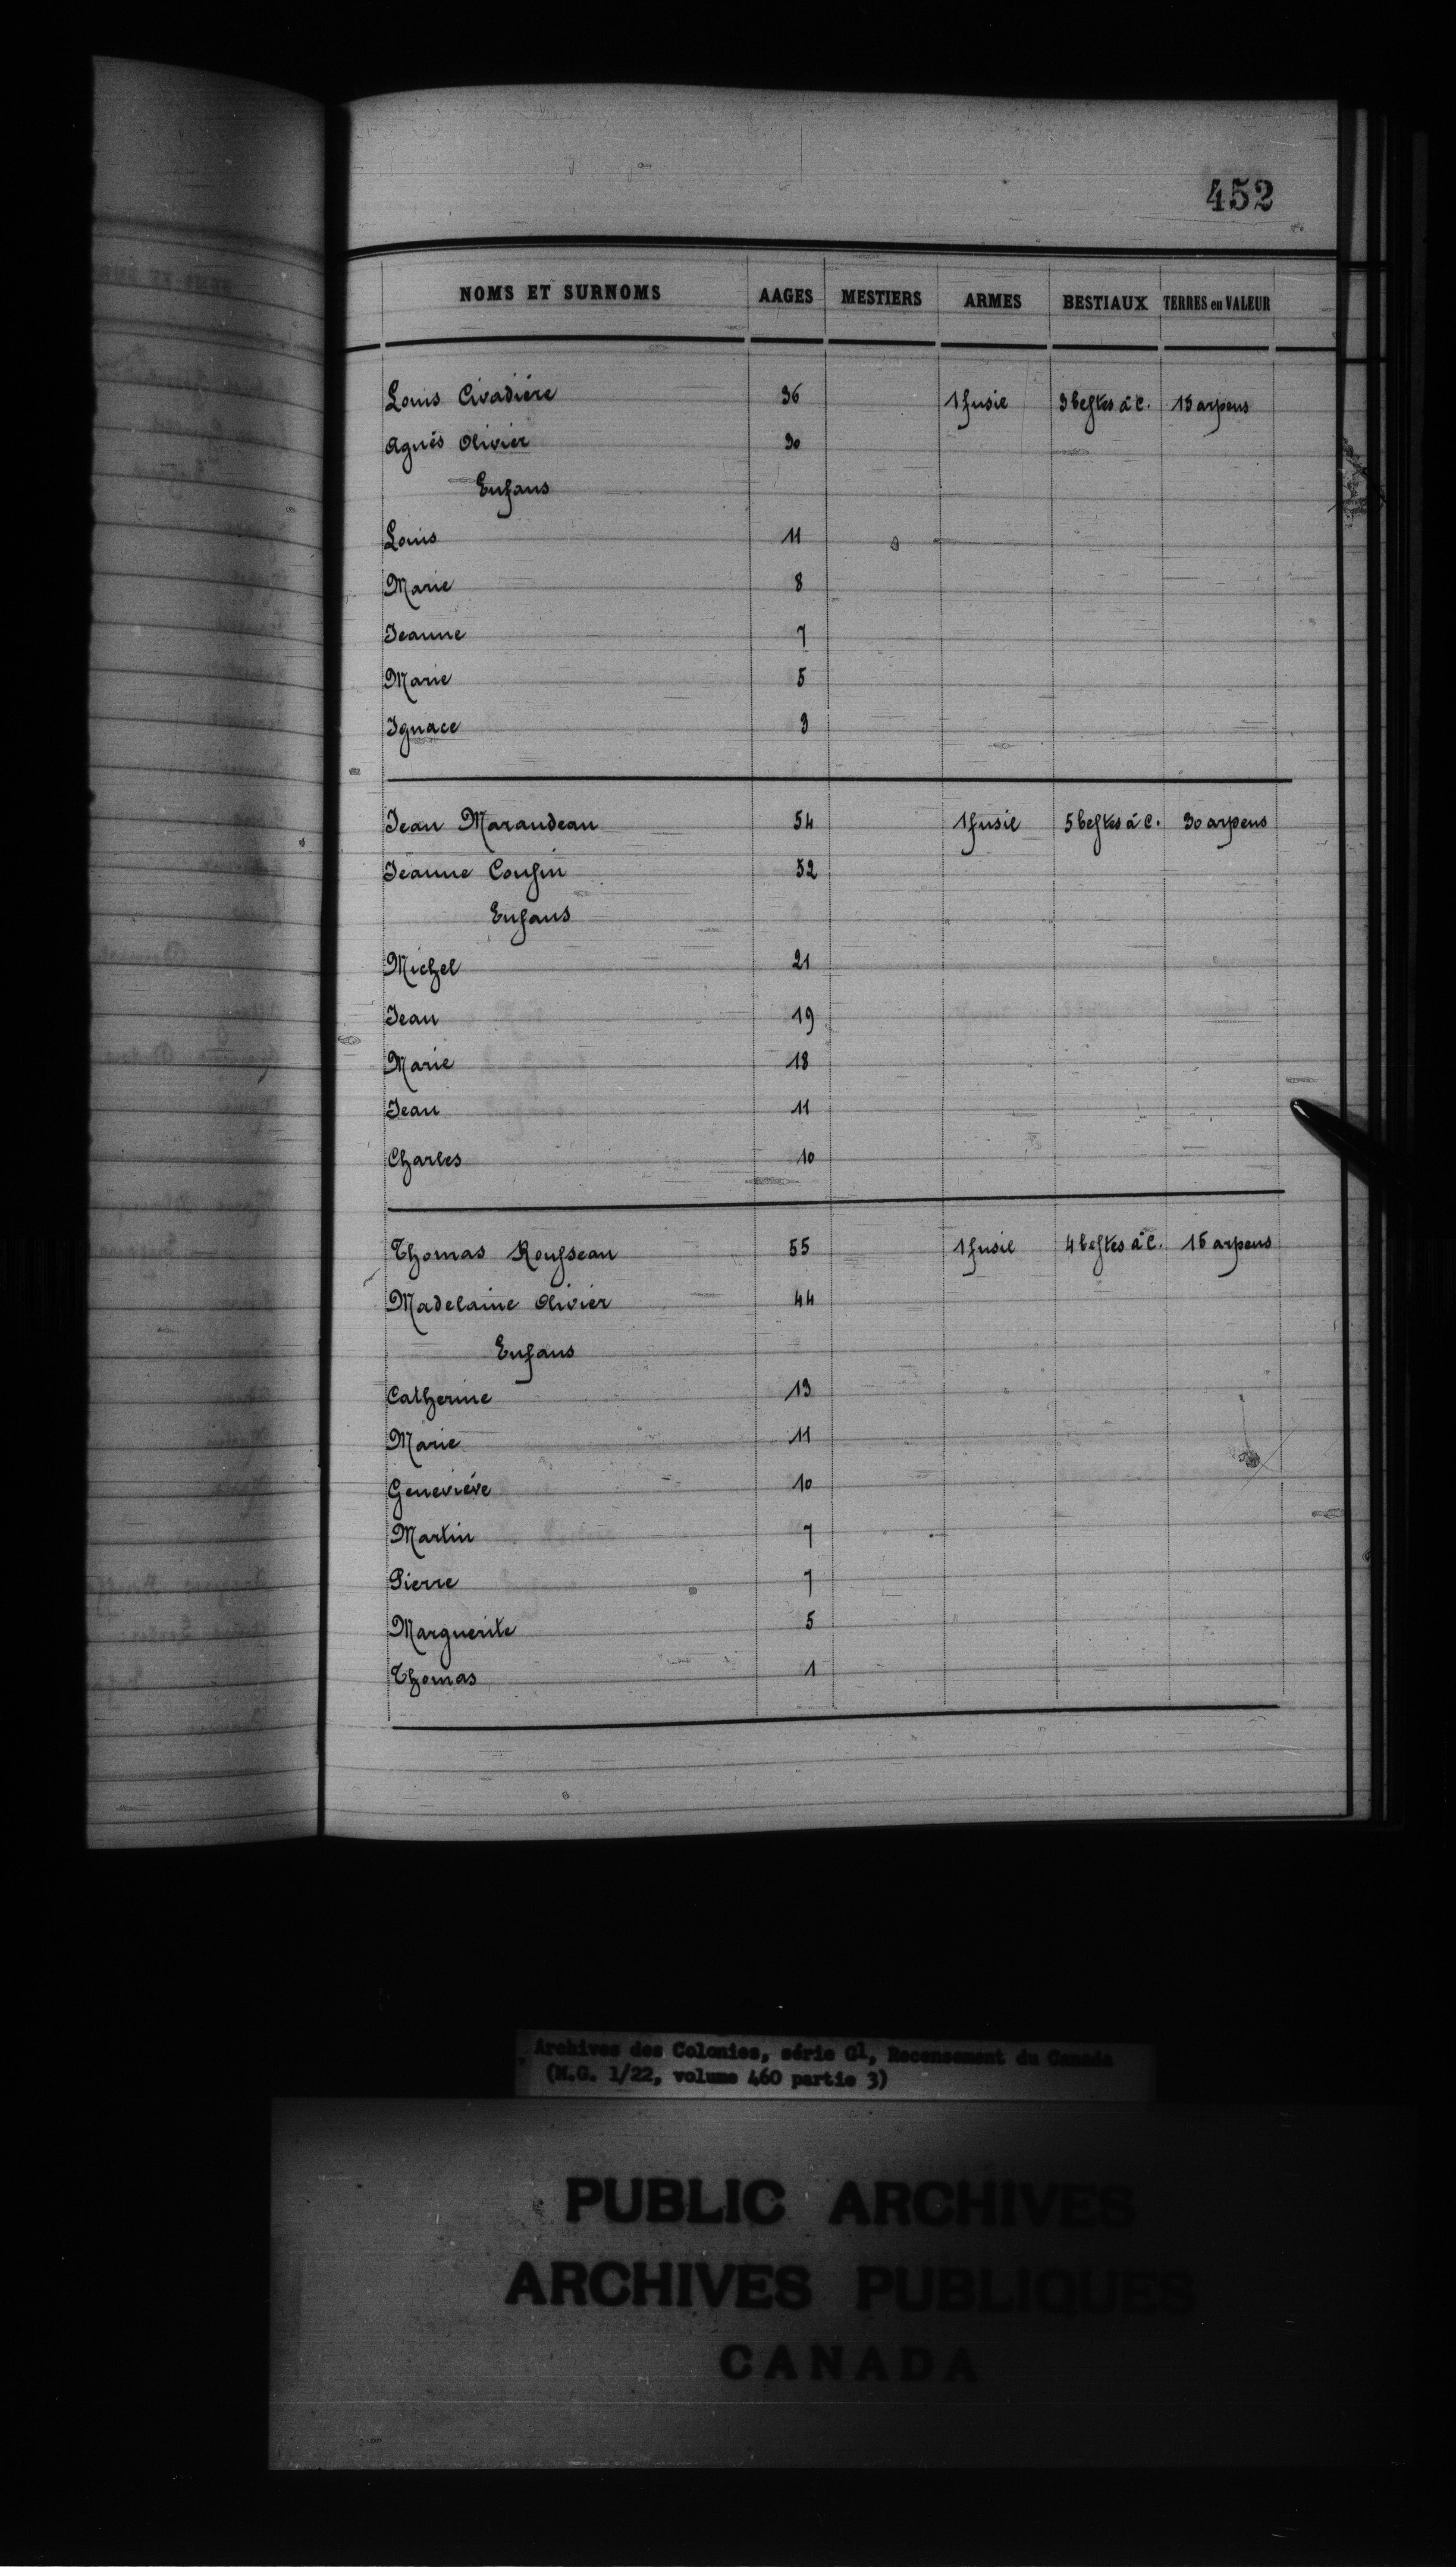 452
NOMS ET SURNOMS AAGES MESTIERS ARMES BESTIAUX TERRES en VALEUR
Louis Civadiére 36 1 fusil 3 bestes à C. 15 arpens
Agnés Olivier 30
Enfans
Louis 11
Marie 8
Jeanne 7
Marie 5
Ignace 3
Jean Maraudeau 54 1 fusil 5 bestes à C. 30 arpens
Jeanne Cousin 52
Enfans
Michel 21
Jean 19
Marie 18
Jean 11
Charles 10
Thomas Rousseau 55 1 fusil 4 bestes à C. 15 arpens
Madelaine Olivier 44
Enfans
Catherine 13
Marie 11
Geneviéve 10
Martin 7
Pierre 7
Marguerite 5
Thomas 1
Archives des Colonies, série G1, Recensement du Canada
(M.G. 1/22, volume 460 partie 3)
PUBLIC ARCHIVES
ARCHIVES PUBLIQUES
CANADA